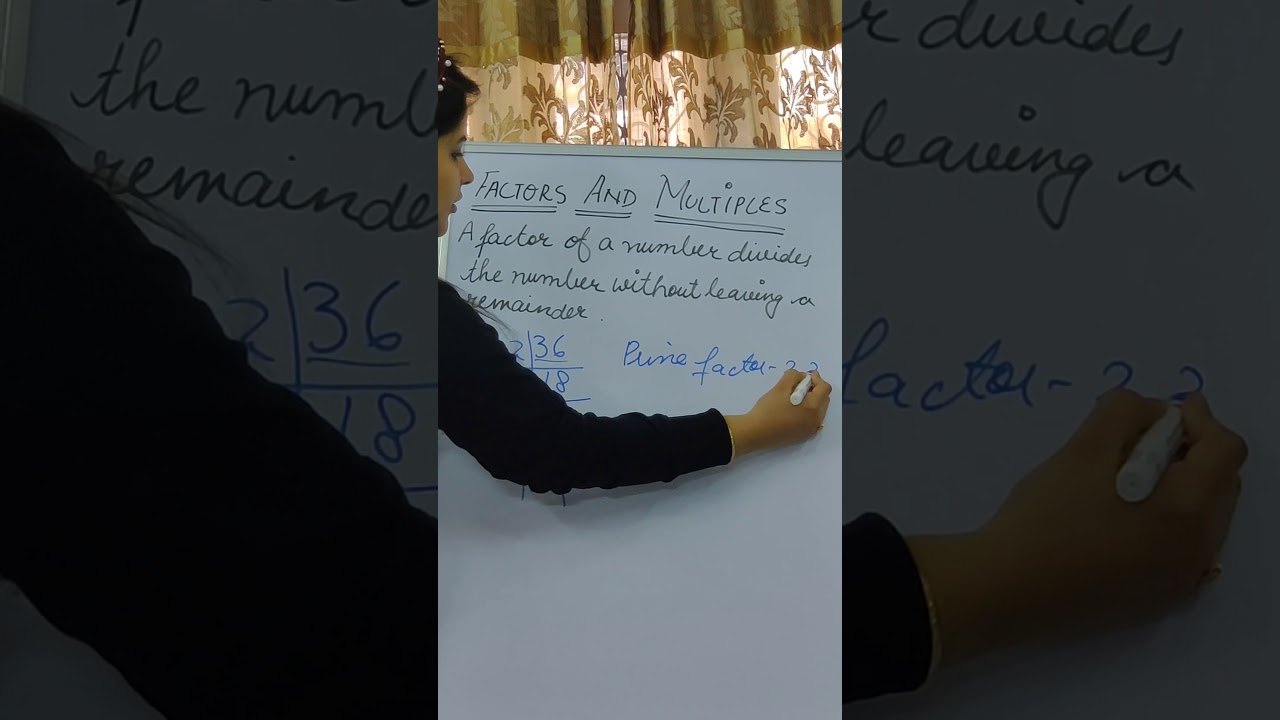 FACTORS AND MULTIPLES
A factor of a number divides
the number without leaving a
remainder.
2 36
18
Prime factor - 2 2